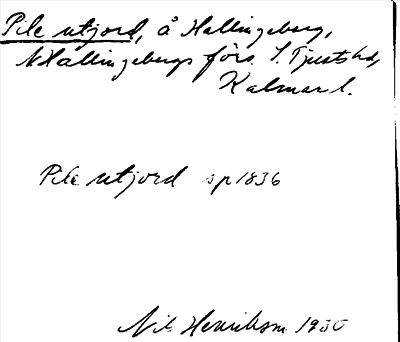 Pile utjord, å Hallingeberg,
Hallingebergs förs. S. Tjusts hd,
Kalmar l.
Pile utjord sp 1836
Nils Henrikson 1930